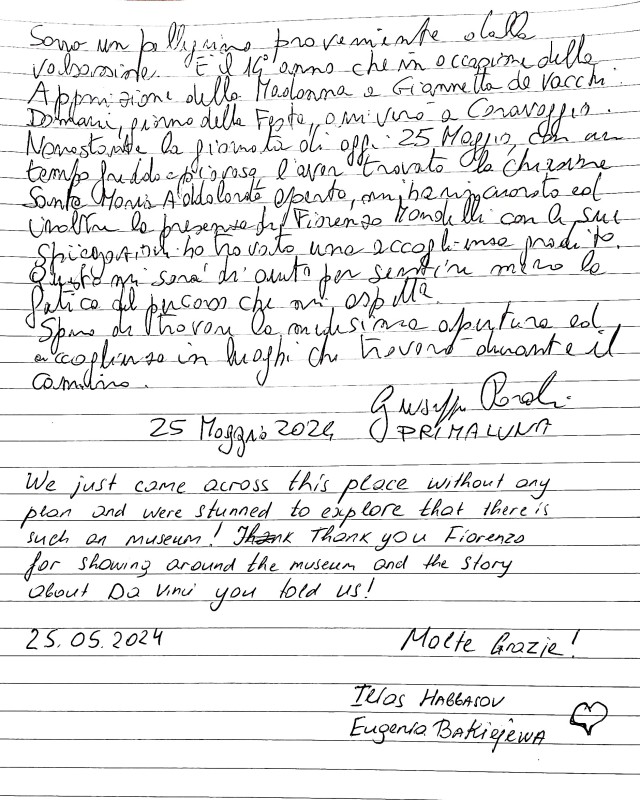 Sono un pellegrino proveniente dalla
Valsassina. È il 19° anno che in occasione della
Apparizione della Madonna a Giannetta de Vacchi.
Domani, giorno della Festa, arriverò a Caravaggio.
Nonostante la giornata di oggi 25 Maggio, con un
tempo freddo e piovoso, l'aver trovato la chiesa
Santa Maria Addolorata aperta, mi ha ed
inoltre la presenza di Fiorenzo Mandelli con la sue
spiegazioni ho trovato una accoglienza gradita.
Questo mi sarà di aiuto per sentire meno la
fatica del percorso che mi aspetta.
Spero di trovare la medesima apertura ed
accoglienza in luoghi che troverò durante il
cammino.
Giuseppe
25 Maggio 2024 PRIMALUNA
We just came across this place without any
plan and were stunned to explore that there is
such an museum! Thank Thank you Fiorenzo
for showing around the museum and the story
about Da Vinci you told us!
25.05.2024 Molte Grazie!
Ilias HABBASOV
Eugenia BAKIEJEWA